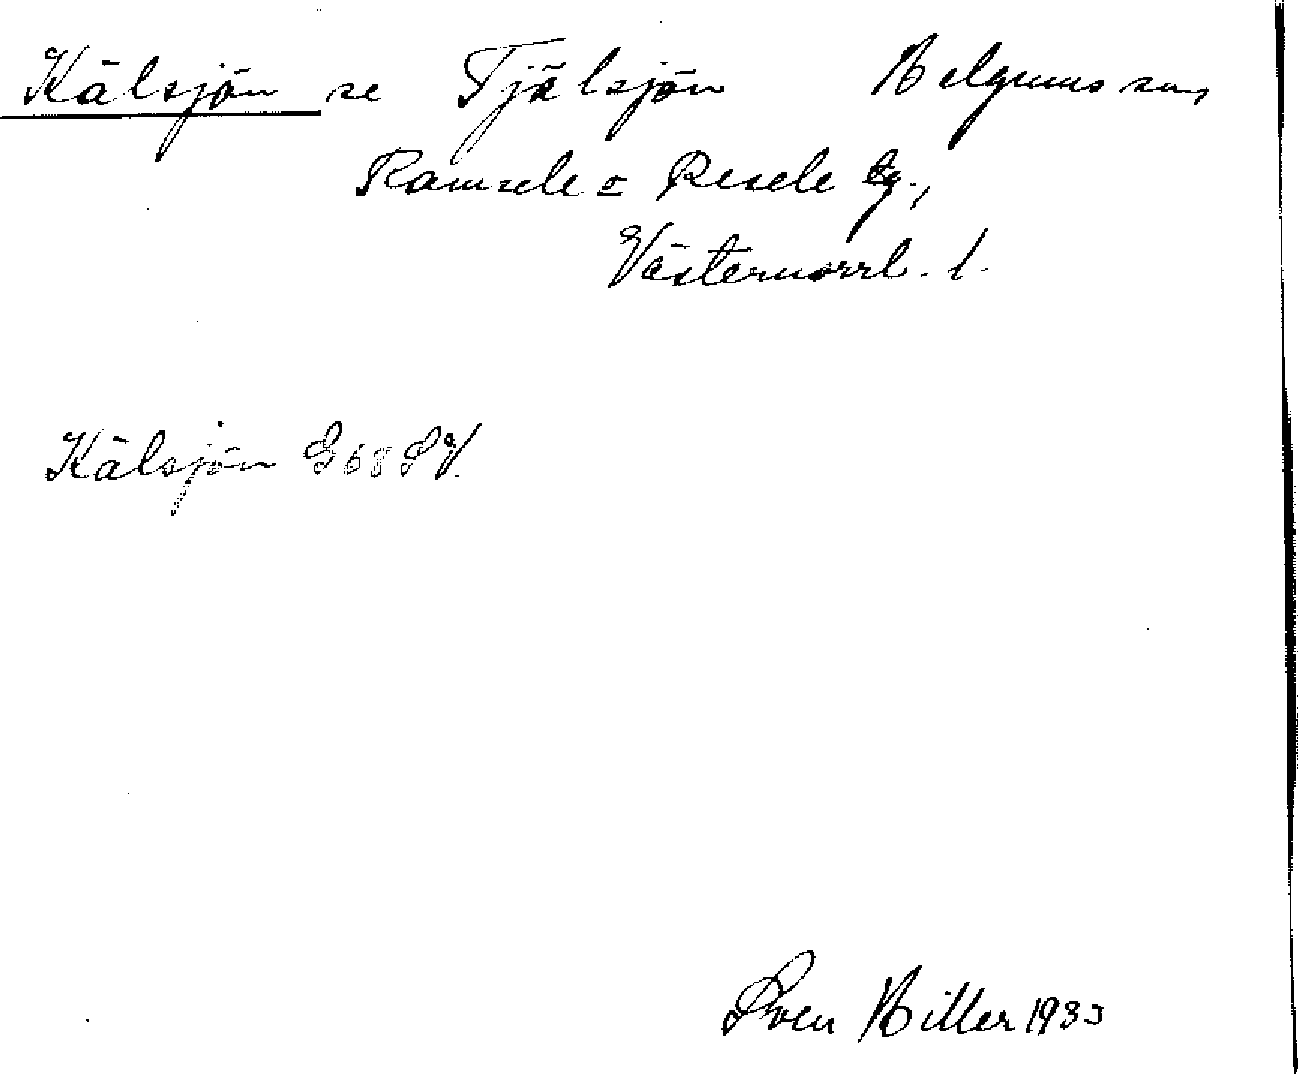 Kälsjön se Tjälsjön Helgums sn,
Ramsele o Resele tg.,
Västernorrl. l.
Kälsjön G 68 SV.
Sven Hiller 1933